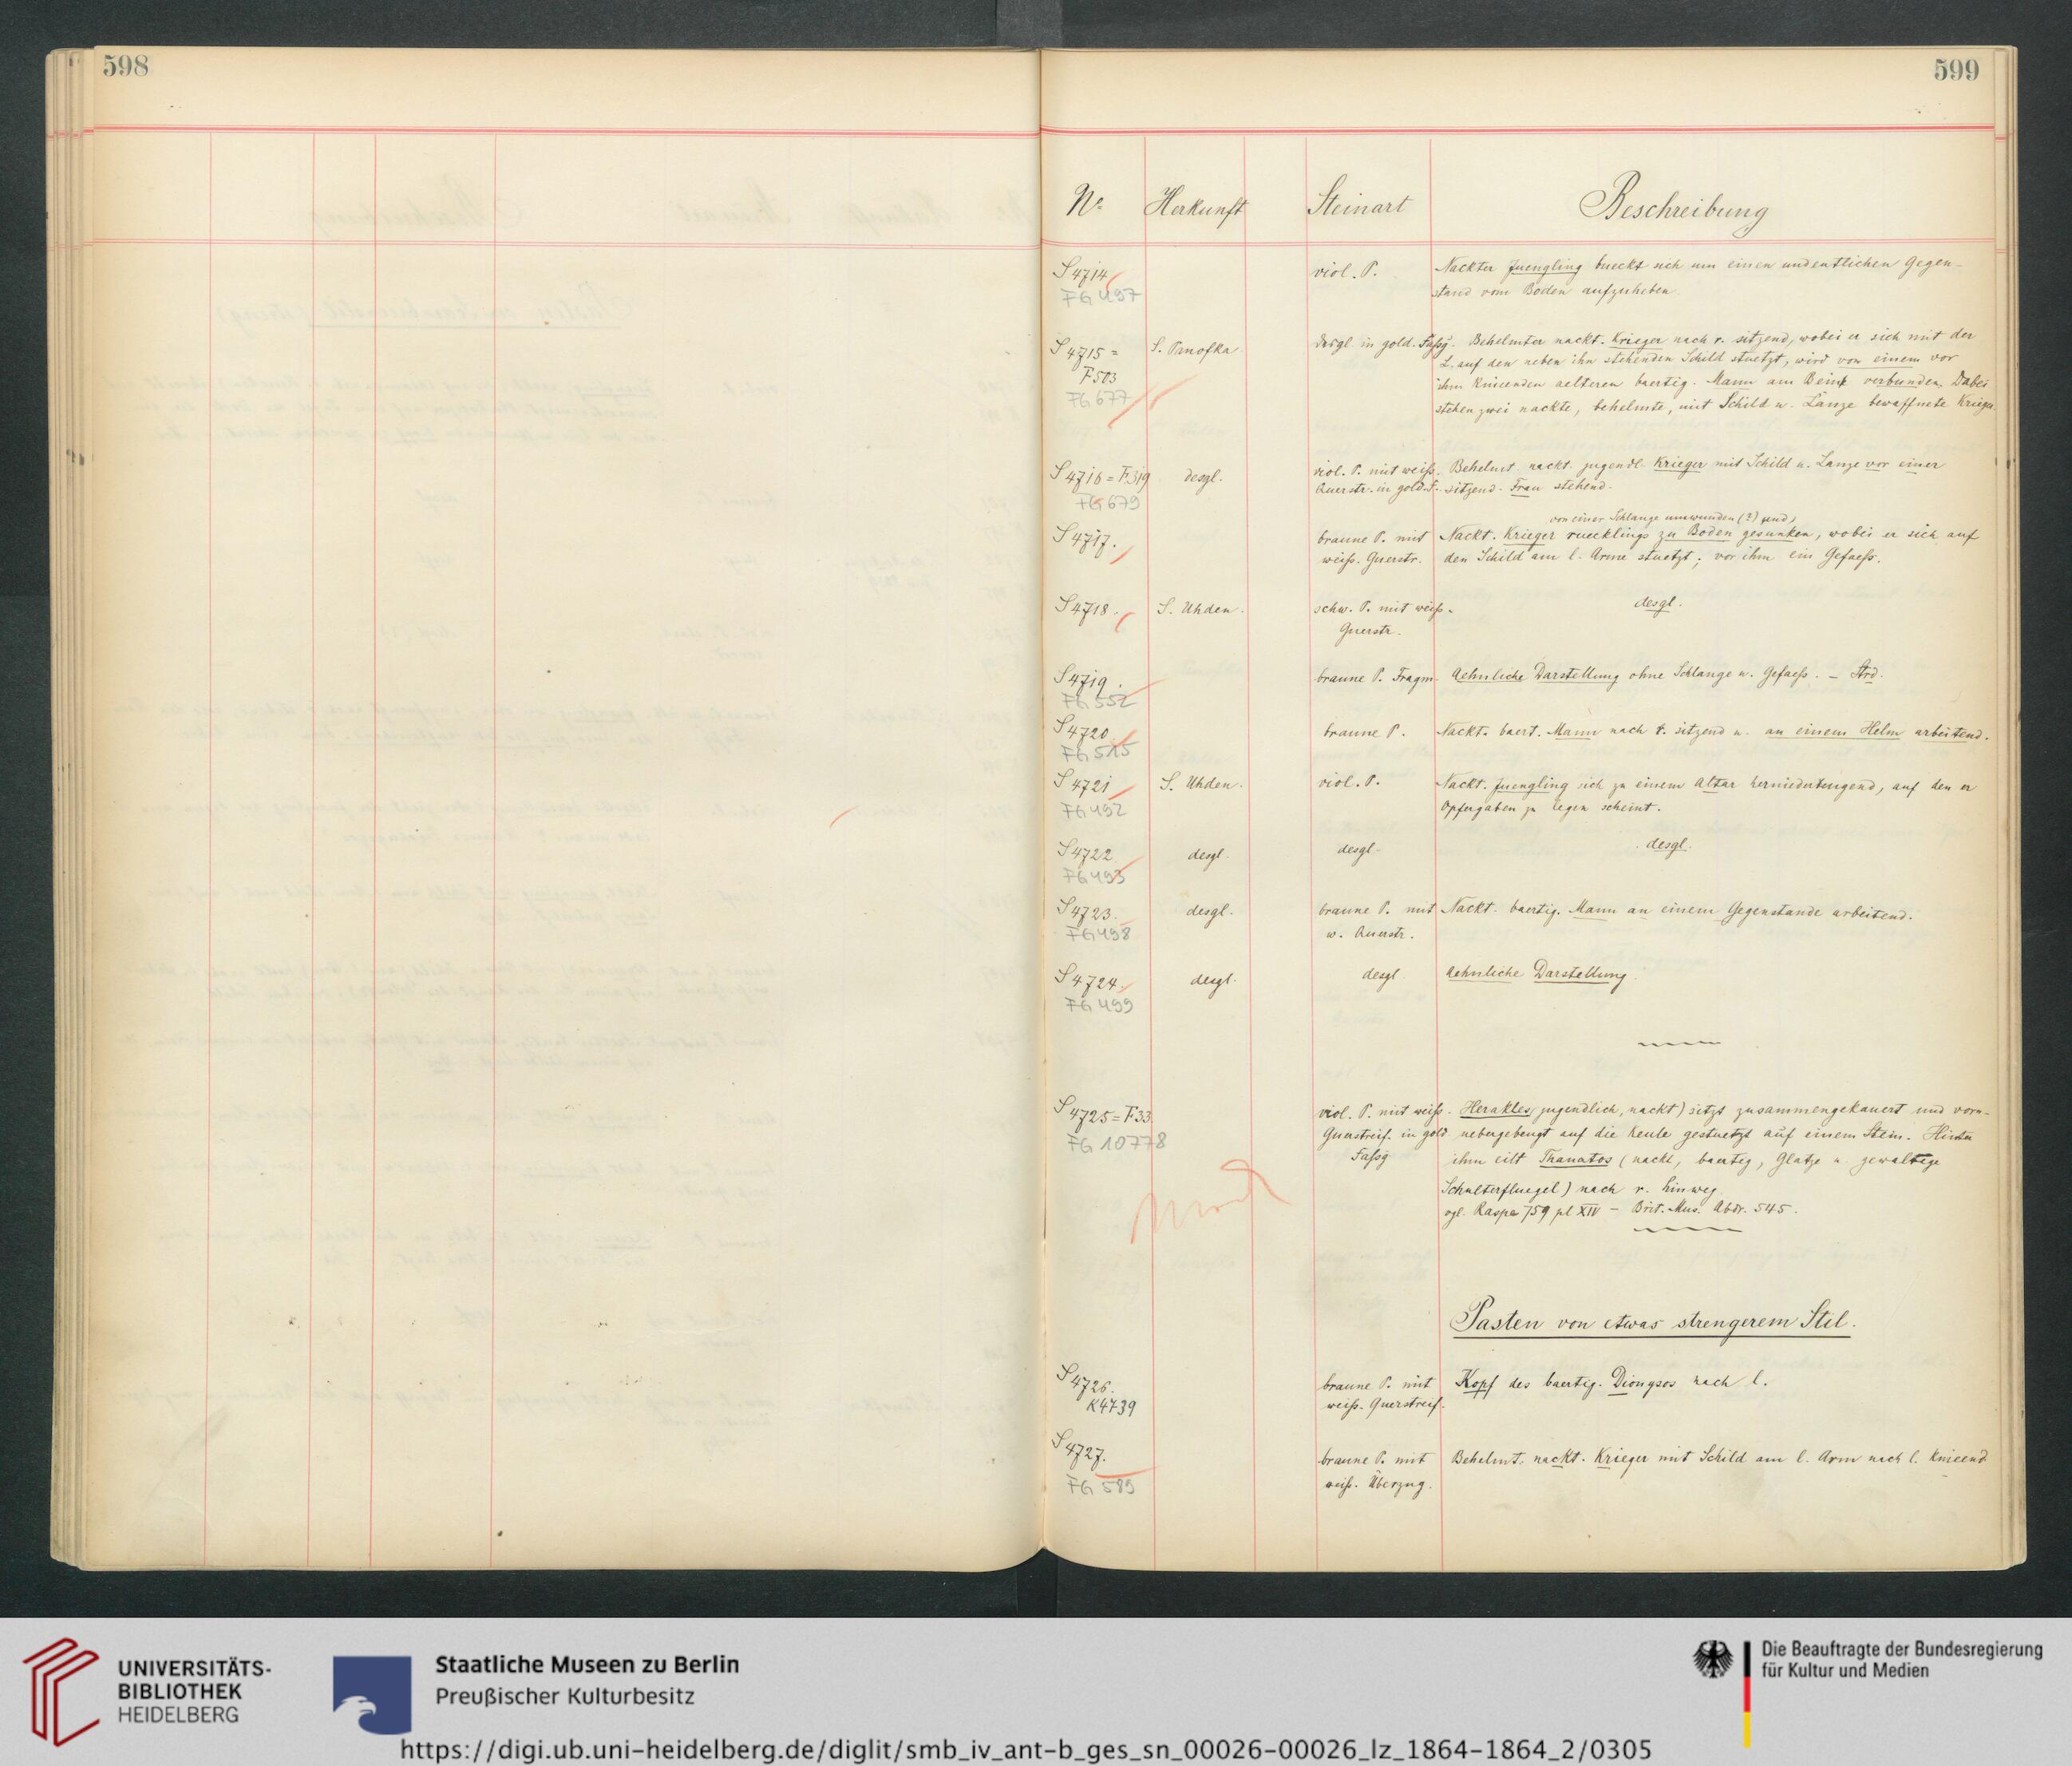 598
599
No Herkunft Steinart Beschreibung
S 4714 viol. P. Nackter Juengling bueckt sich um einen undeutlichen Gegen-
FG 497 stand vom Boden aufzuheben.
S 4715 = S. Panofka desgl. in gold. Fassg. Behelmter nackt. Krieger nach r. sitzend, wobei er sich mit der
F 503 L. auf den neben ihn stehenden Schild stuetzt, wird von einem vor
FG 677 ihm knieenden aelteren baertig. Mann am Bein verbunden. Dabei
stehen zwei nackte, behelmte, mit Schild u. Lanze bewaffnete Krieger.
S 4716 = F.319 desgl. viol. P. mit weiss. Behelmt. nackt. jugendl. Krieger mit Schild u. Lanze vor einer
FG 679 Querstr. in gold. F. sitzend. Frau stehend.
von einer Schlange umwunden (?) und
S 4717. braune P. mit Nackt. Krieger ruecklings zu Boden gesunken, wobei er sich auf
weiss. Querstr. den Schild am l. Arme stuetzt; vor ihm ein Gefaess.
S 4718. S. Uhden. schw. P. mit weiss. desgl.
Querstr.
S 4719. braune P. Fragm. Aehnliche Darstellung ohne Schlange u. Gefaess. –
FG 552
S 4720 braune P. Nackt. baert. Mann nach r. sitzend u. an einem Helm arbeitend.
FG 515
S 4721 S. Uhden. viol. P. Nackt. Juengling sich zu einem Altar herniederbeugend, auf den er
FG 492 Opfergaben zu legen scheint.
S 4722 desgl. desgl. desgl.
FG 493
S 4723. desgl. braune P. mit Nackt. baertig. Mann an einem Gegenstande arbeitend.
FG 498 w. Querstr.
S 4724. desgl. desgl. Aehnliche Darstellung.
FG 499
S 4725 = F 33. viol. P. mit weiss. Herakles (jugendlich, nackt) sitzt zusammengekauert und vorn-
FG 10778 Querstreif. in gold. uebergebeugt auf die Keule gestuetzt auf einem Stein. Hinter
Fassg ihm eilt Thanatos (nackt, baertig, Glatze u. gewaltige
Schulterfluegel) nach r. hinweg.
vgl. Raspe 759 pl XIV – Brit. Mus. Abdr. 545.
Pasten von etwas strengerem Stil.
S 4726. braune P. mit Kopf des baertig. Dionysos nach l.
K4739 weiss. Querstreif.
S 4727. braune P. mit Behelmt. nackt. Krieger mit Schild am l. Arm nach l. knieend
FG 589 weiss. Überzug.
UNIVERSITÄTS-
BIBLIOTHEK
HEIDELBERG
Staatliche Museen zu Berlin
Preußischer Kulturbesitz
Die Beauftragte der Bundesregierung
für Kultur und Medien
https://digi.ub.uni-heidelberg.de/diglit/smb_iv_ant-b_ges_sn_00026-00026_lz_1864-1864_2/0305